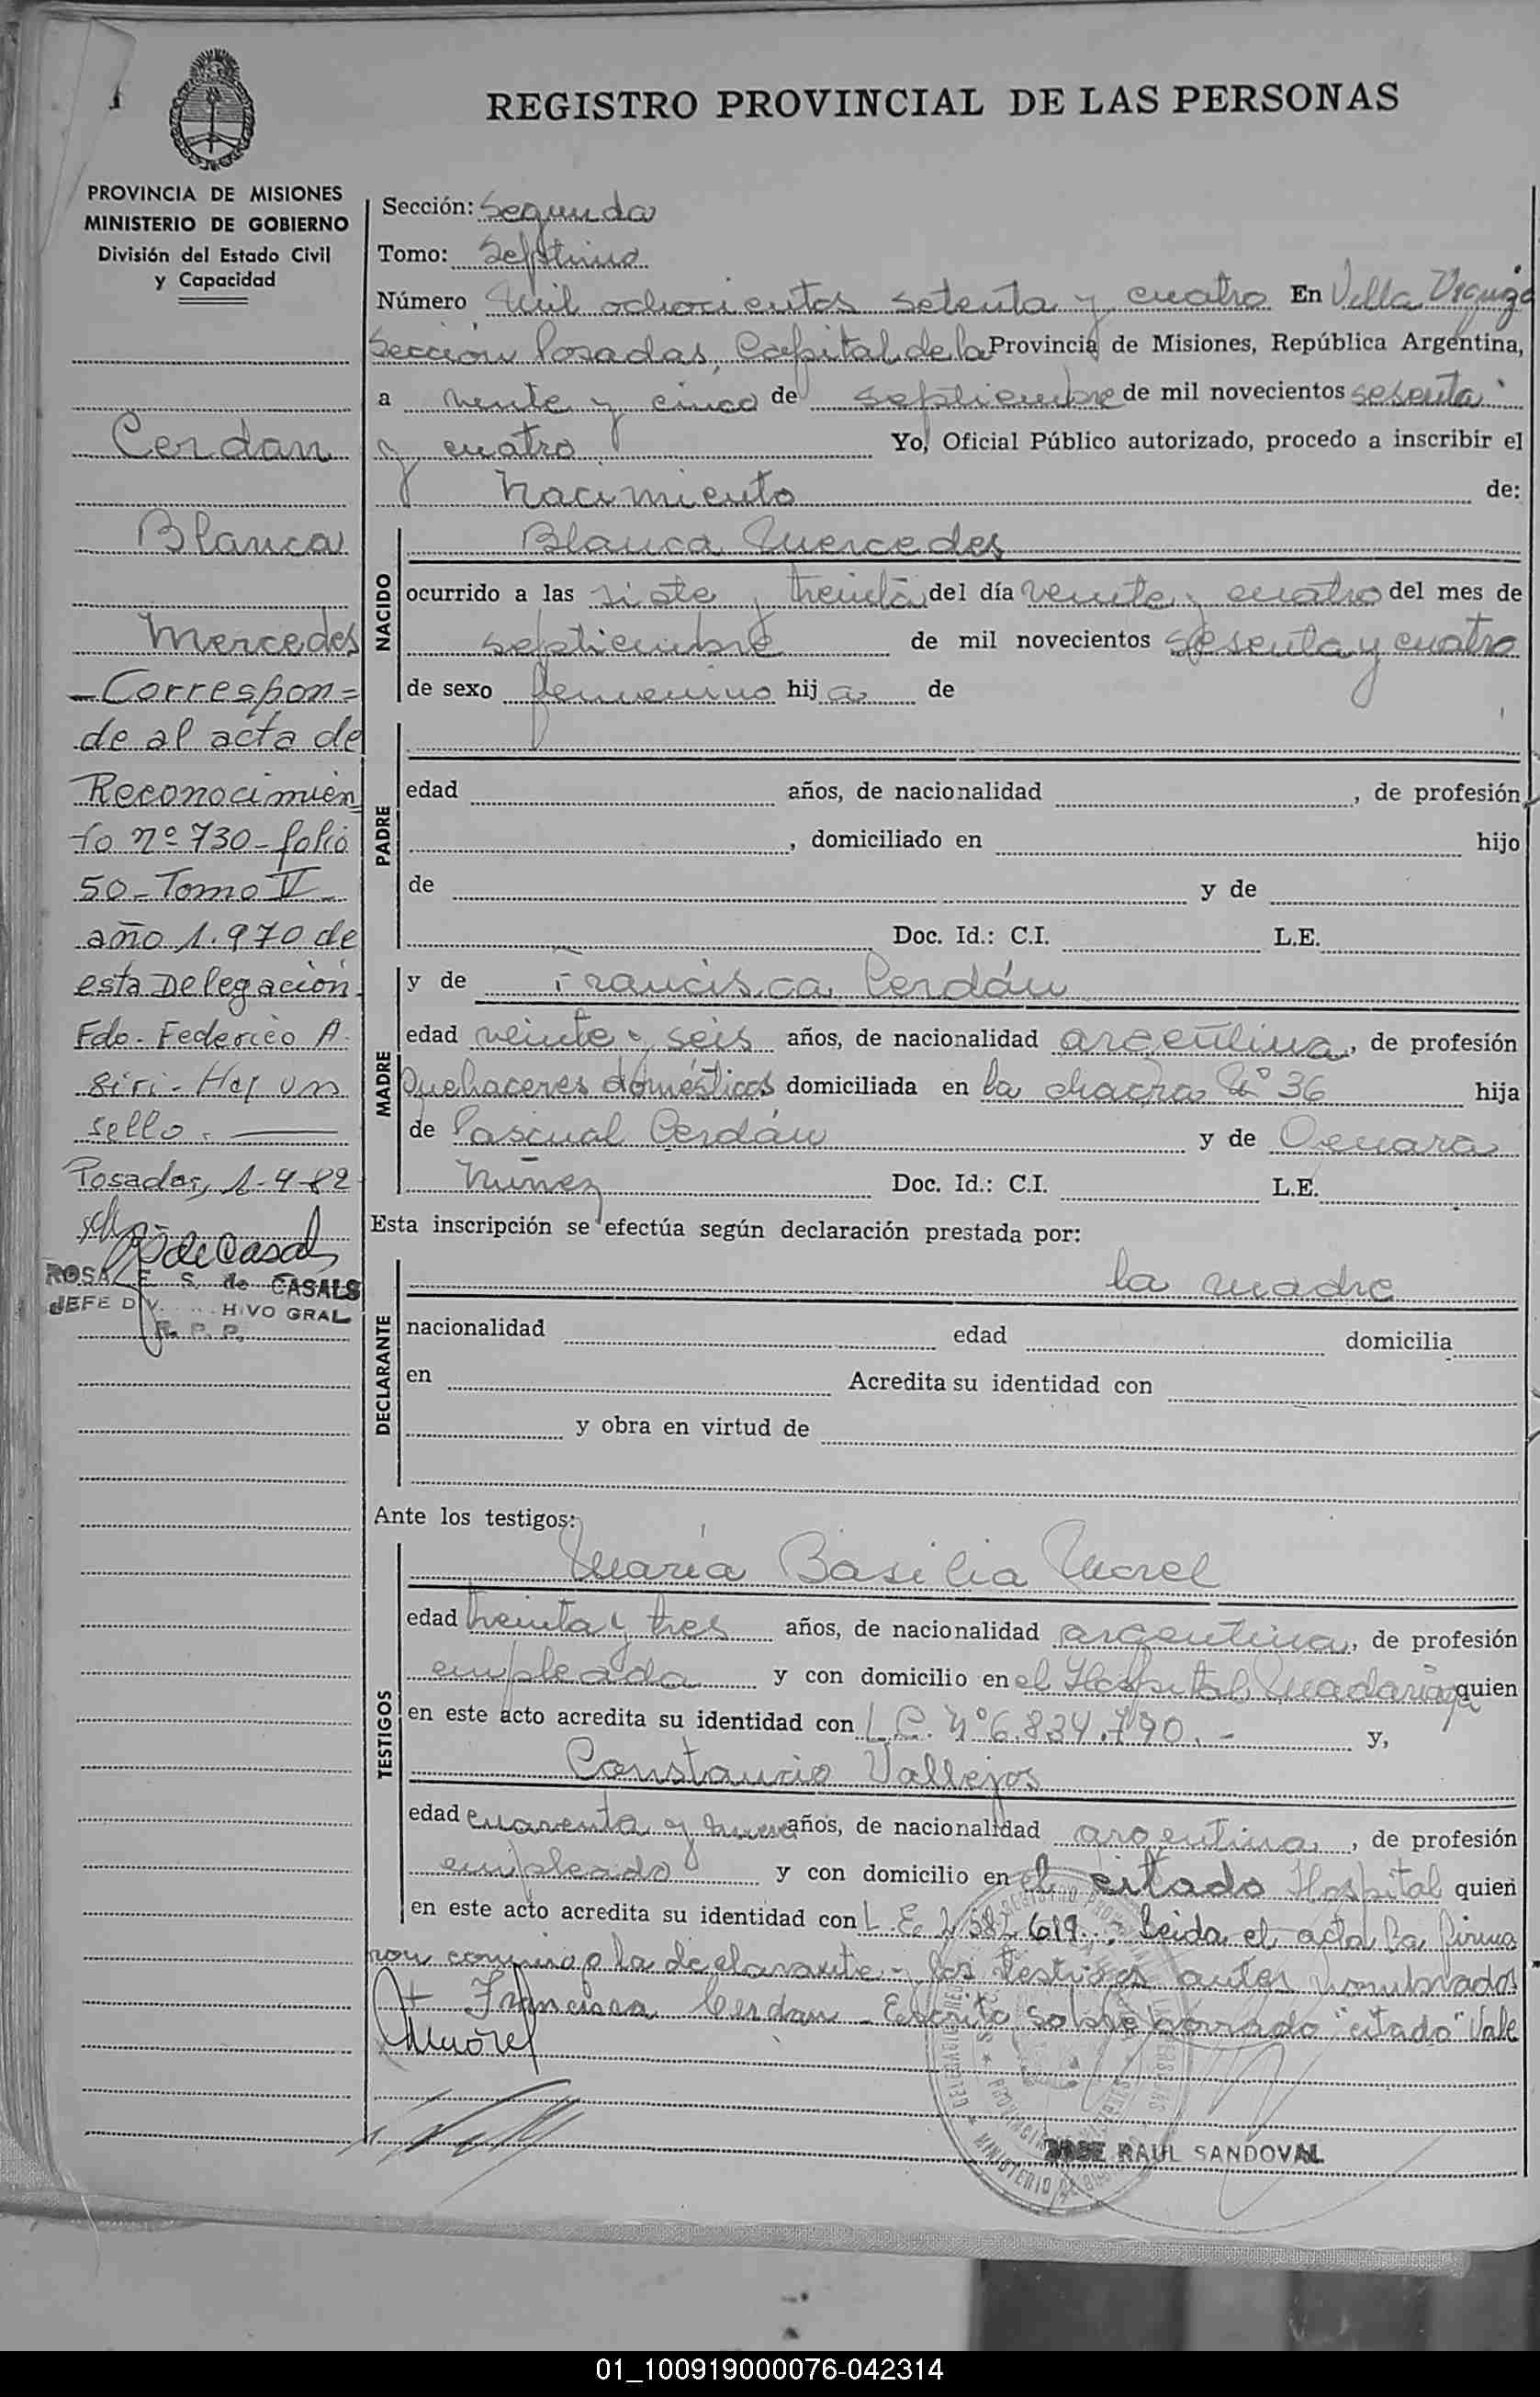 REGISTRO PROVINCIAL DE LAS PERSONAS
PROVINCIA DE MISIONES
MINISTERIO DE GOBIERNO
División del Estado Civil
y Capacidad
Cerdan
Blanca
Mercedes
- Correspon=
de al acta de
Reconocimien
to nº 730 - folio
50 - Tomo V -
año 1.970 de
esta Delegación
Fdo. Federico A.
Siri - Hay un
sello. -
Posadas, 1-4-82
de Casals
ROSA E. S. de CASALS
JEFE DIV. HIVO GRAL
R. P. P.
Sección: Segunda
Tomo: Septimo
Número Mil ochocientos setenta y cuatro En Villa Urquiza
Sección Posadas, Capital de la Provincia de Misiones, República Argentina,
a veinte y cinco de septiembre de mil novecientos sesenta
y cuatro Yo, Oficial Público autorizado, procedo a inscribir el
Nacimiento de:
NACIDO
Blanca Mercedes
ocurrido a las siete y treinta del día veinte y cuatro del mes de
septiembre de mil novecientos sesenta y cuatro
de sexo femenino hija de
PADRE
edad años, de nacionalidad , de profesión
, domiciliado en hijo
de y de
Doc. Id.: C.I. L.E.
MADRE
y de Francisca Cerdán
edad veinte y seis años, de nacionalidad argentina, de profesión
Quehaceres domésticos domiciliada en la chacra Nº 36 hija
de Pascual Cerdán y de Genara
Núñez Doc. Id.: C.I. L.E.
Esta inscripción se efectúa según declaración prestada por:
DECLARANTE
la madre
nacionalidad edad domicilia
en Acredita su identidad con
y obra en virtud de
Ante los testigos:
TESTIGOS
María Basilia Morel
edad treinta y tres años, de nacionalidad argentina, de profesión
empleada y con domicilio en el Hospital Madariaga quien
en este acto acredita su identidad con L.C. Nº 6.834.790.- y,
Constancio Vallejos
edad cuarenta y nueve años, de nacionalidad argentina, de profesión
empleado y con domicilio en el citado Hospital quien
en este acto acredita su identidad con L.E. 2.582.619.- Leida el acta la firma
ron conmigo la declarante y los testigos antes nombrados
+ Francisca Cerdan - Escrito sobre borrado "citado" Vale
Morel
JOSE RAUL SANDOVAL
01_100919000076-042314